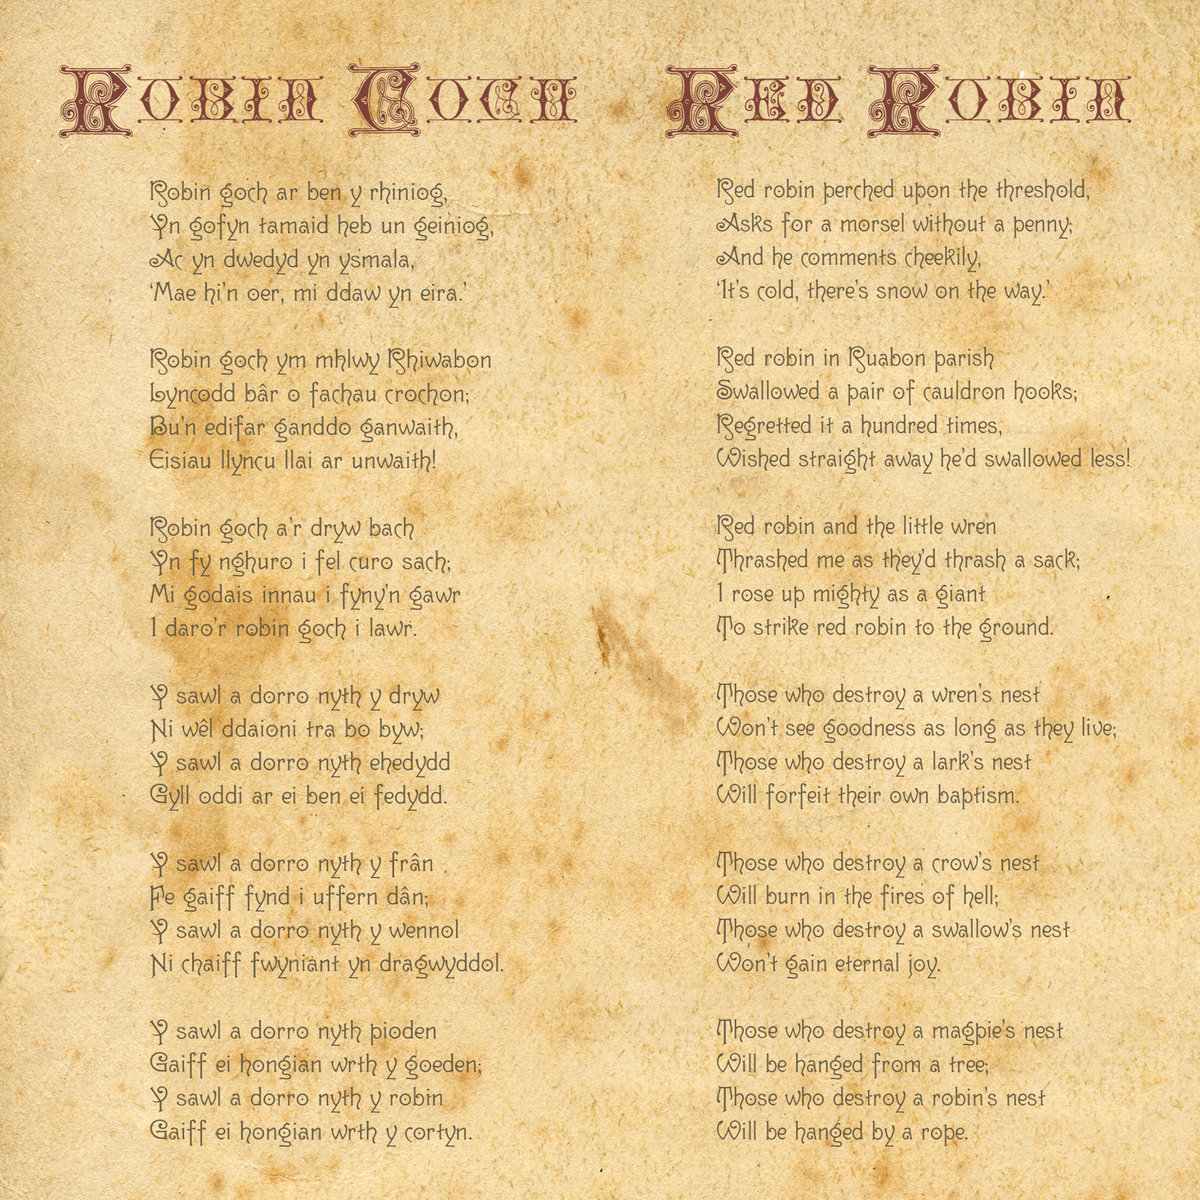 Robin Goch
Robin goch ar ben y rhiniog,
Yn gofyn tamaid heb un geiniog,
Ac yn dwedyd yn ysmala,
‘Mae hi’n oer, mi ddaw yn eira.’
Robin goch ym mhlwy Rhiwabon
Lyncodd bâr o fachau crochon;
Bu’n edifar ganddo ganwaith,
Eisiau llyncu llai ar unwaith!
Robin goch a’r dryw bach
Yn fy nghuro i fel curo sach;
Mi godais innau i fyny’n gawr
I daro’r robin goch i lawr.
Y sawl a dorro nyth y dryw
Ni wêl ddaioni tra bo byw;
Y sawl a dorro nyth ehedydd
Gyll oddi ar ei ben ei fedydd.
Y sawl a dorro nyth y frân
Fe gaiff fynd i uffern dân;
Y sawl a dorro nyth y wennol
Ni chaiff fwyniant yn dragwyddol.
Y sawl a dorro nyth pioden
Gaiff ei hongian wrth y goeden;
Y sawl a dorro nyth y robin
Gaiff ei hongian wrth y cortyn.
Red Robin
Red robin perched upon the threshold,
Asks for a morsel without a penny;
And he comments cheekily,
‘It’s cold, there’s snow on the way.’
Red robin in Ruabon parish
Swallowed a pair of cauldron hooks;
Regretted it a hundred times,
Wished straight away he’d swallowed less!
Red robin and the little wren
Thrashed me as they’d thrash a sack;
I rose up mighty as a giant
To strike red robin to the ground.
Those who destroy a wren’s nest
Won’t see goodness as long as they live;
Those who destroy a lark’s nest
Will forfeit their own baptism.
Those who destroy a crow’s nest
Will burn in the fires of hell;
Those who destroy a swallow’s nest
Won’t gain eternal joy.
Those who destroy a magpie’s nest
Will be hanged from a tree;
Those who destroy a robin’s nest
Will be hanged by a rope.